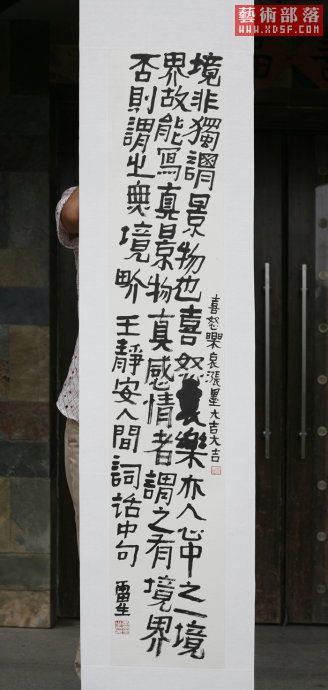 藝術部落
WWW.XDSF.COM
境非獨謂景物也喜怒哀樂亦人心中之一境
界故能寫真景物真感情者謂之有境界
否則謂之無境畍 王靜安人間詞話中句
喜怒樂哀漲墨大吉大吉